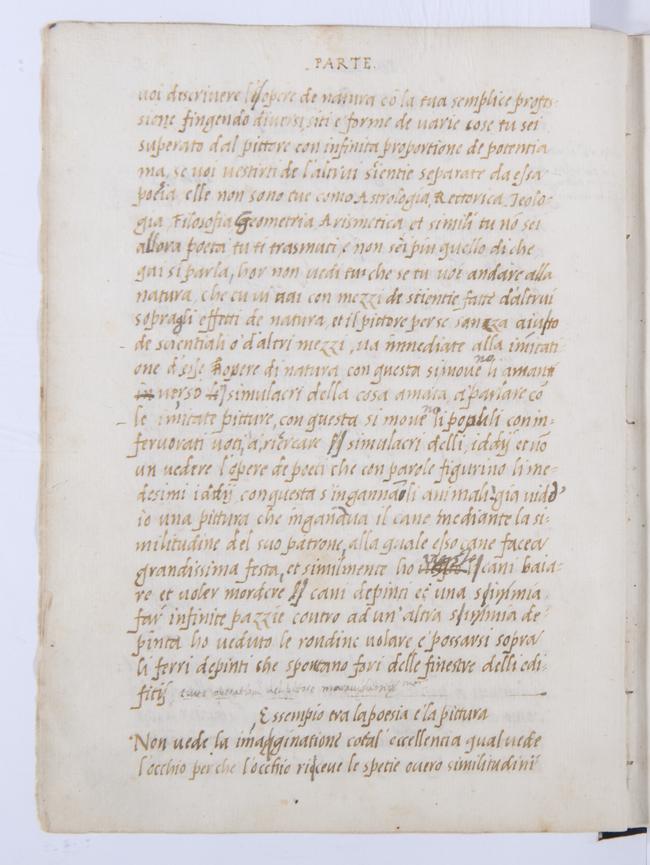 PARTE.
voi descrivere l'opere de natura cō la tua semplice profes=
sione fingendo diversi siti e forme de varie cose tu sei
superato dal pittore con infinita proportione de potentia
ma, se voi vestirti de l'altrui scientie separate da essa
poesia elle non sono tue como Astrologia, Rettorica, Teolo=
gia, Filosofia Geometria Arismetica et simili tu nō sei
allora poeta tu ti trasmuti, e non sei piu quello di che
qui si parla, hor non vedi tu che se tu voi andare alla
natura, che tu vi vai con mezzi de scientie fatte d'altrui
sopra gli effetti de natura, et il pittore per se sanzza aiuto
de scientia li o d'altri mezzi, va inmediate alla imitati
one d'esse opere di natura con questa si move li amanti
in verso li simulacri della cosa amata, a parlare cō
le imitate pitture, con questa si move li populi con in=
fervorati voti, a, ricrcare li simulacri delli, iddij et nō
un vedere l'opere de poeti che con parole figurino li me=
desimi iddij con questa s'ingannāo li animali, gia vidd'
io una pittura che ingannava il cane mediante la si=
militudine del suo patrone, alla quale esso cane facea
grandissima festa, et similmente ho visto li cani baia=
re et voler mordere li cani depinti et una scimmia
far infinite pazzie contro ad un'altra scimmia de=
pinta ho veduto le rondine volare e' possarsi sopra
li ferri depinti che spontano fori delle finestre delli edi=
fitij
Essempio tra la poesia e' la pittura
Non vede la imaginatione cotal' eccellentia qual vede
l'occhio perche l'occhio riceve le spetie overo similitudini